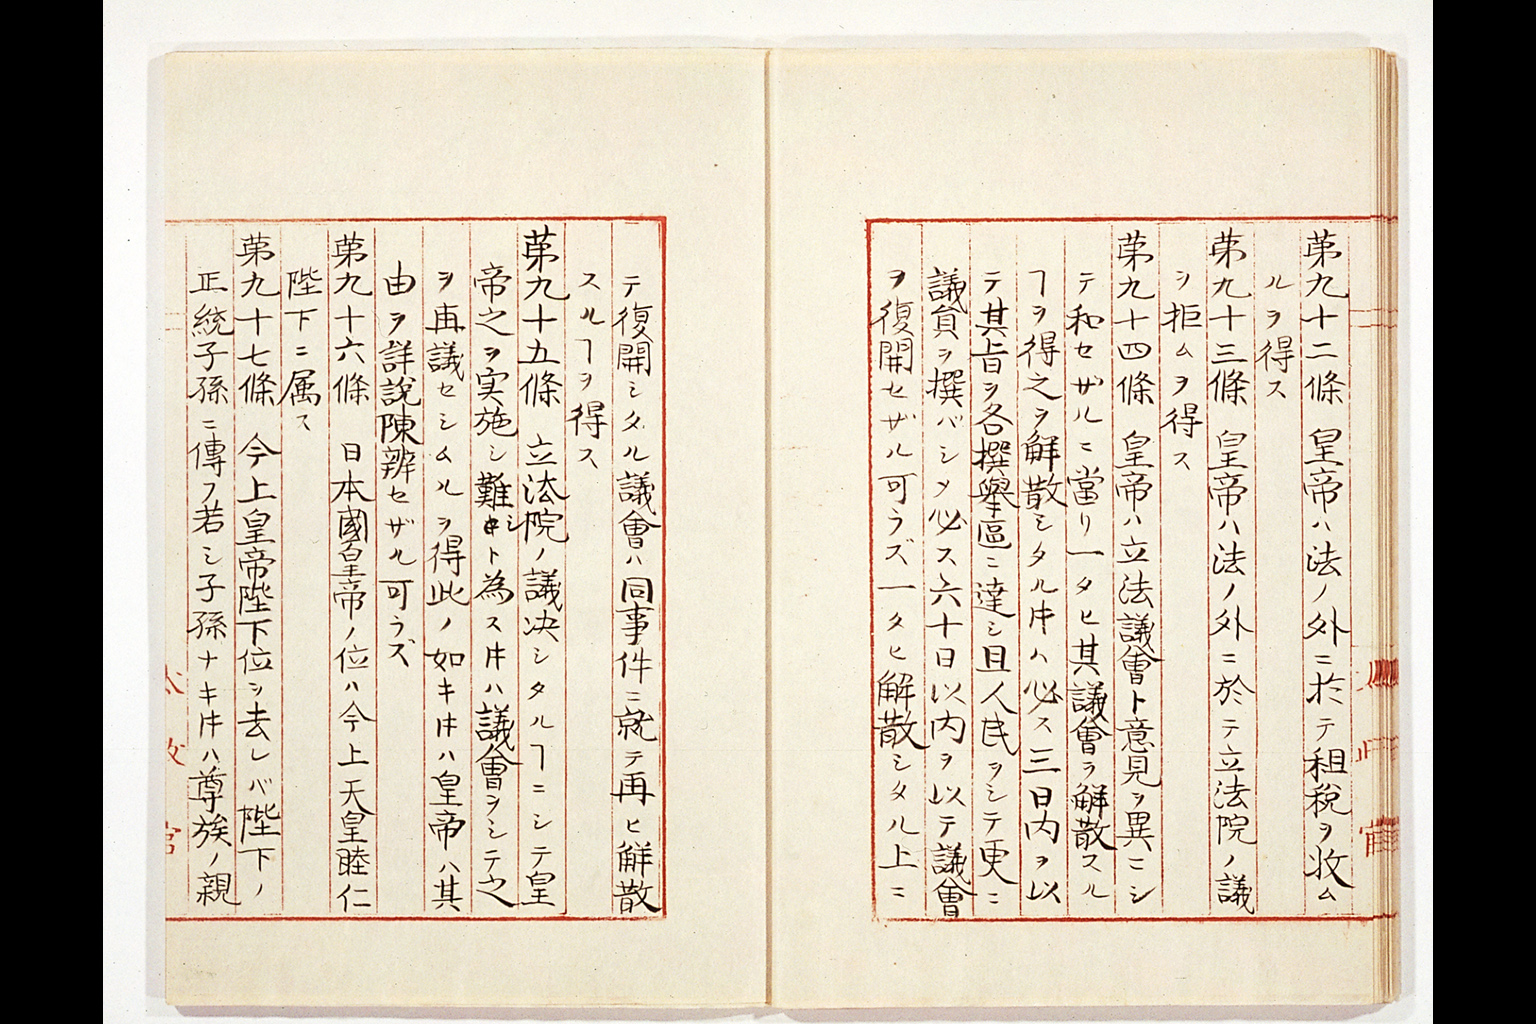 第九十二條　皇帝ハ法ノ外ニ於テ租税ヲ收ム
ルヲ得ス
第九十三條　皇帝ハ法ノ外ニ於テ立法院ノ議
ヲ拒ムヲ得ス
第九十四條　皇帝ハ立法議會ト意見ヲ異ニシ
テ和セザルニ當リ一タヒ其議會ヲ解散スル
ヿヲ得之ヲ解散シタル時ハ必ス三日内ヲ以
テ其旨ヲ各撰舉區ニ達シ且人民ヲシテ更ニ
議員ヲ撰バシメ必ス六十日以内ヲ以テ議會
ヲ復開セザル可ラズ一タヒ解散シタル上ニ
テ復開シタル議會ハ同事件ニ就テ再ヒ解散
スルヿヲ得ス
第九十五條　立法院ノ議决シタルヿニシテ皇
帝之ヲ実施シ難シト為ス㪽ハ議會ヲシテ之
ヲ再議セシムルヲ得此ノ如キ㪽ハ皇帝ハ其
由ヲ詳説陳辨セザル可ラズ
第九十六條　日本國皇帝ノ位ハ今上天皇睦仁
陛下ニ属ス
第九十七條　今上皇帝陛下位ヲ去レバ陛下ノ
正統子孫ニ傳フ若シ子孫ナキ㪽ハ尊族ノ親